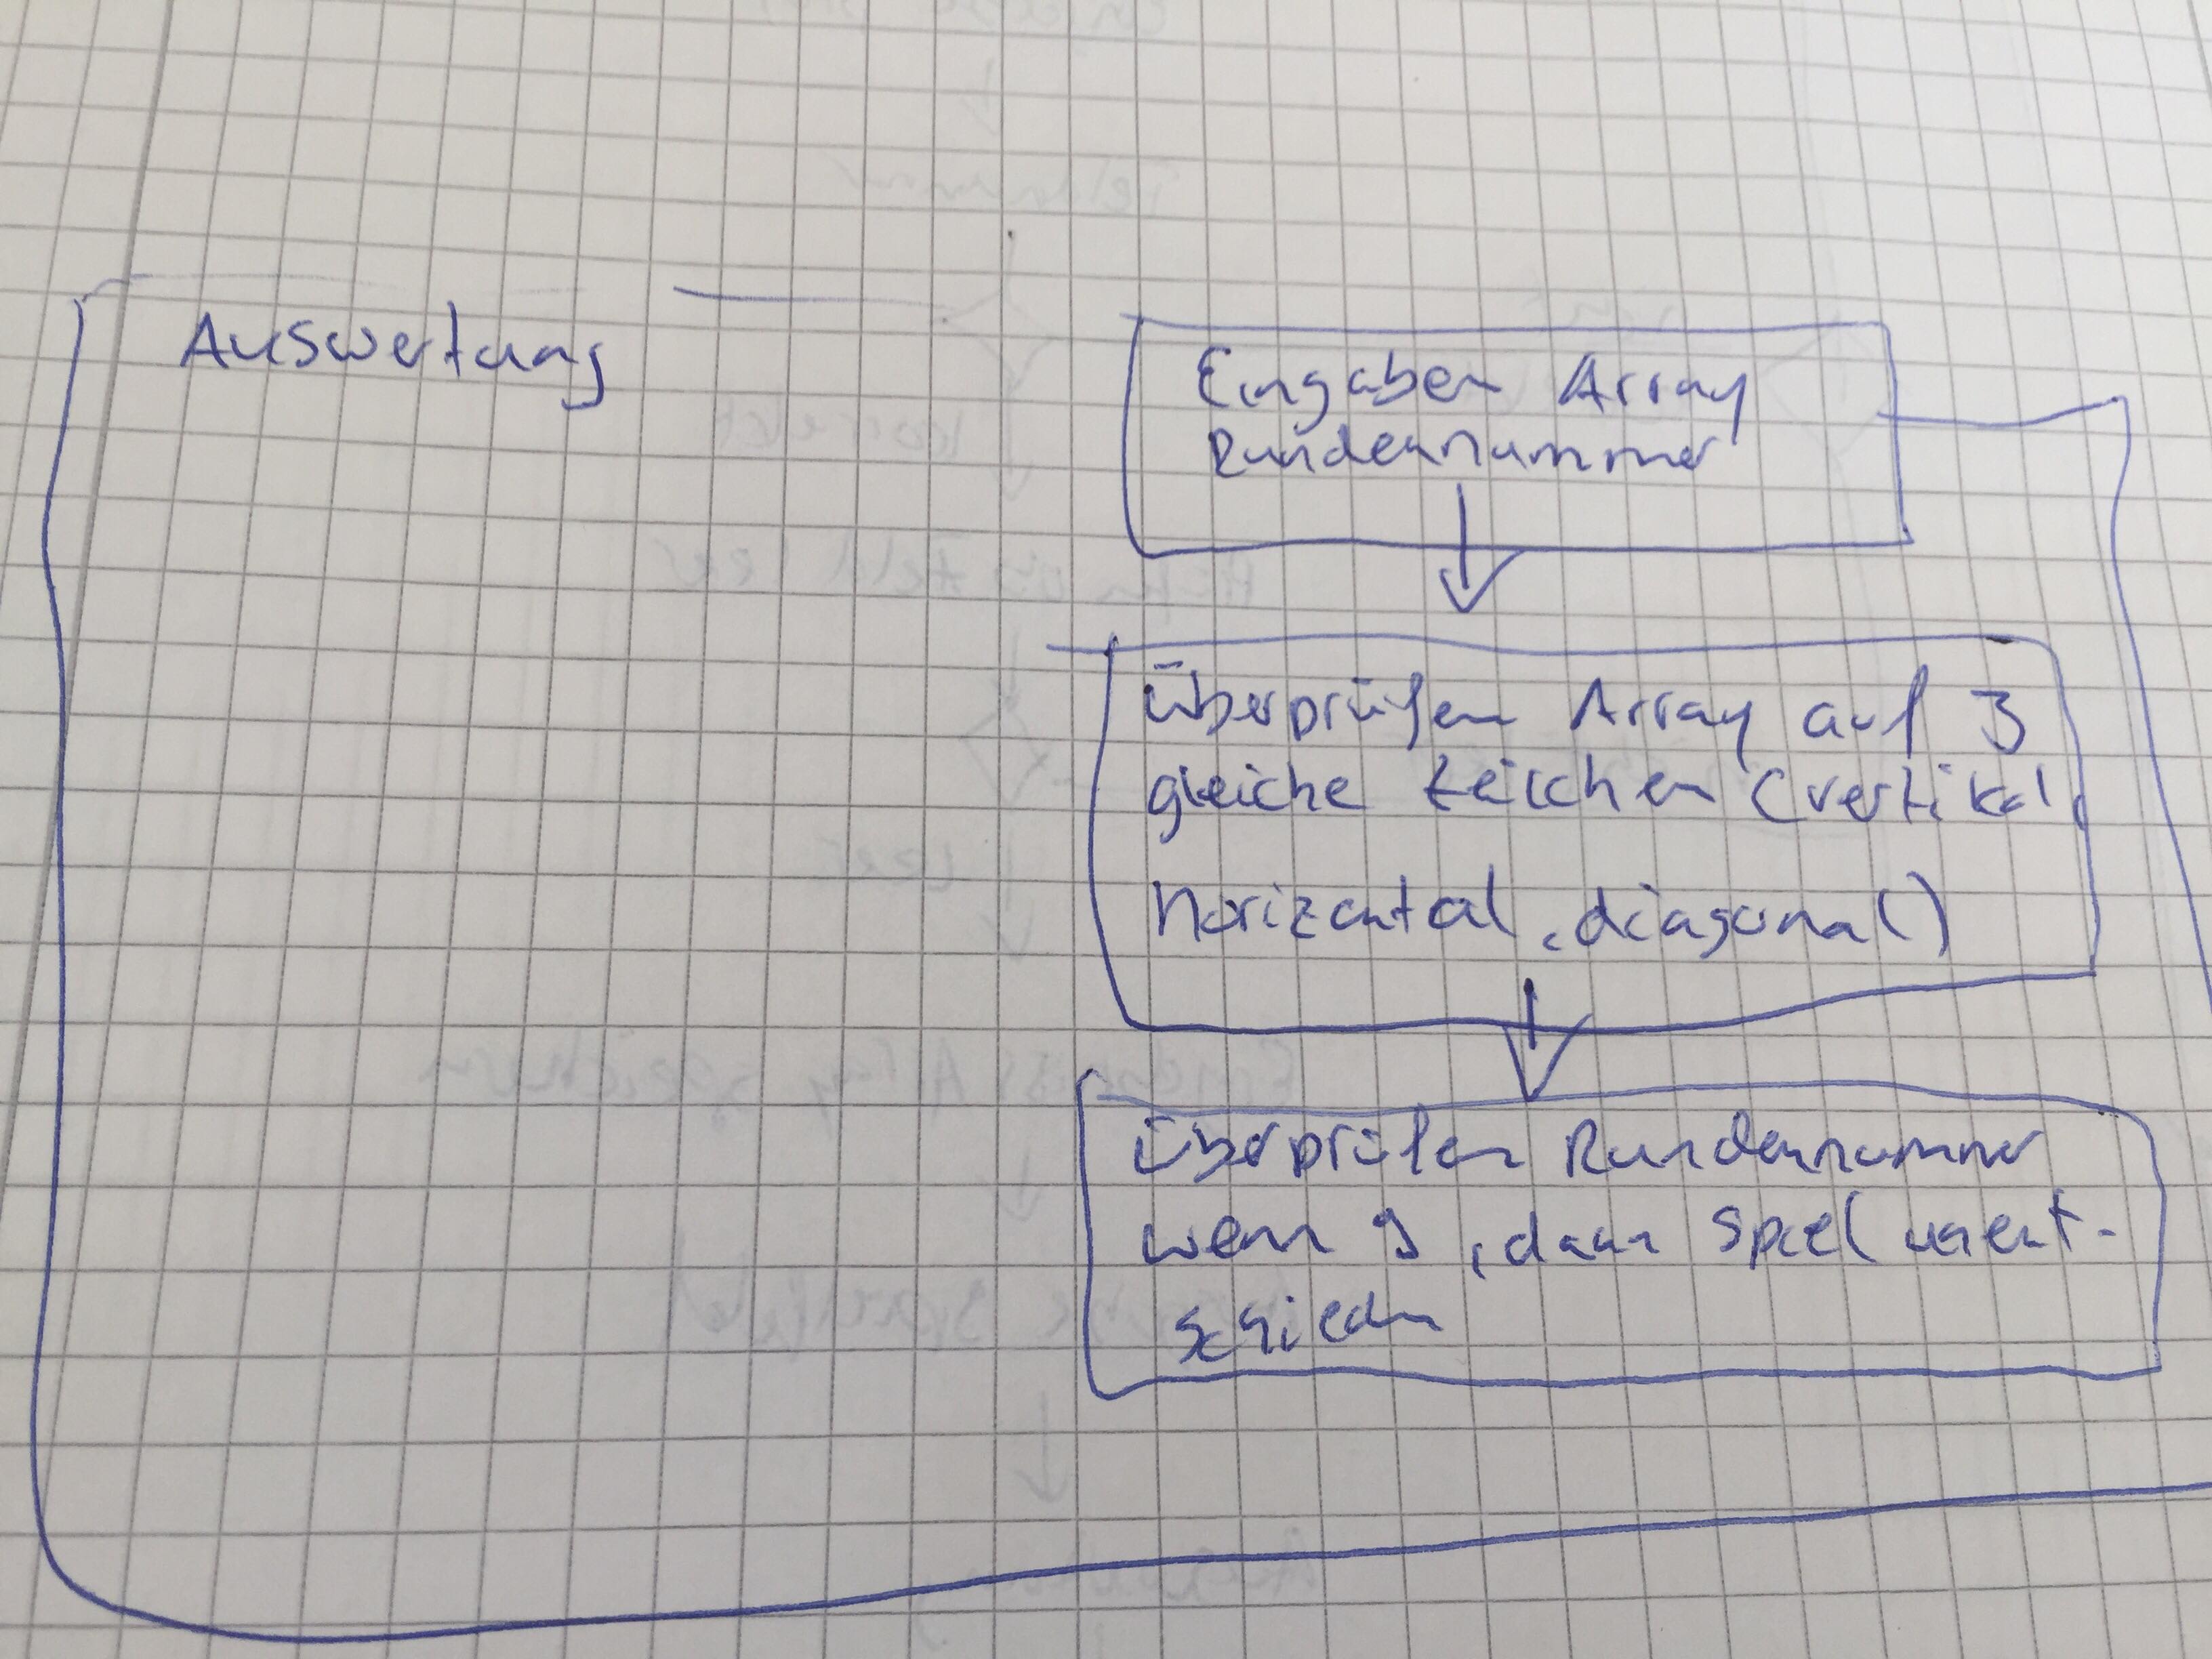 Auswertung
Eingaben Array
Rundennummer
überprüfen Array auf 3
gleiche Zeichen (vertikal,
horizontal, diagonal)
überprüfen Rundennummer
wenn 9, dann Spiel unent-
schieden